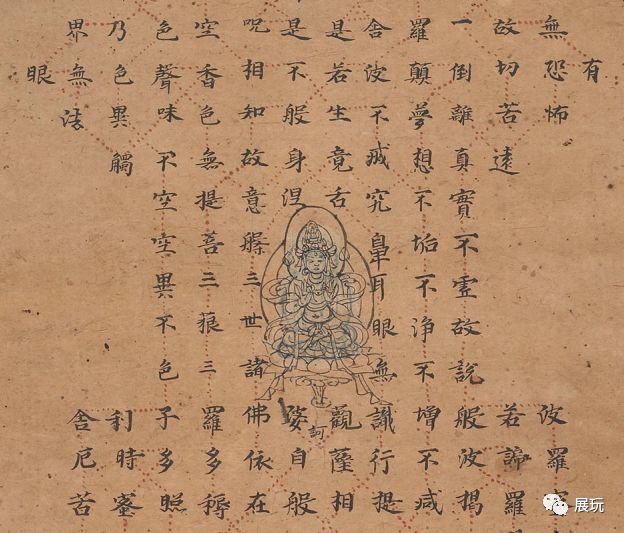 有
無恐怖 波羅
故切苦遠 若諦羅
一倒離真實不虛故說般波揭
羅顛夢想不垢不淨不增不減
舍波不減究鼻耳眼無識行提
是若生竟舌 觀薩相
訶
是不般身涅 婆自般
呪相知故意槃三世諸佛依在
空香色無提菩三藐三羅多耨
色聲味不空空異不色子多照
乃色異觸 利時蜜
界無法 舍厄苦
眼
展玩